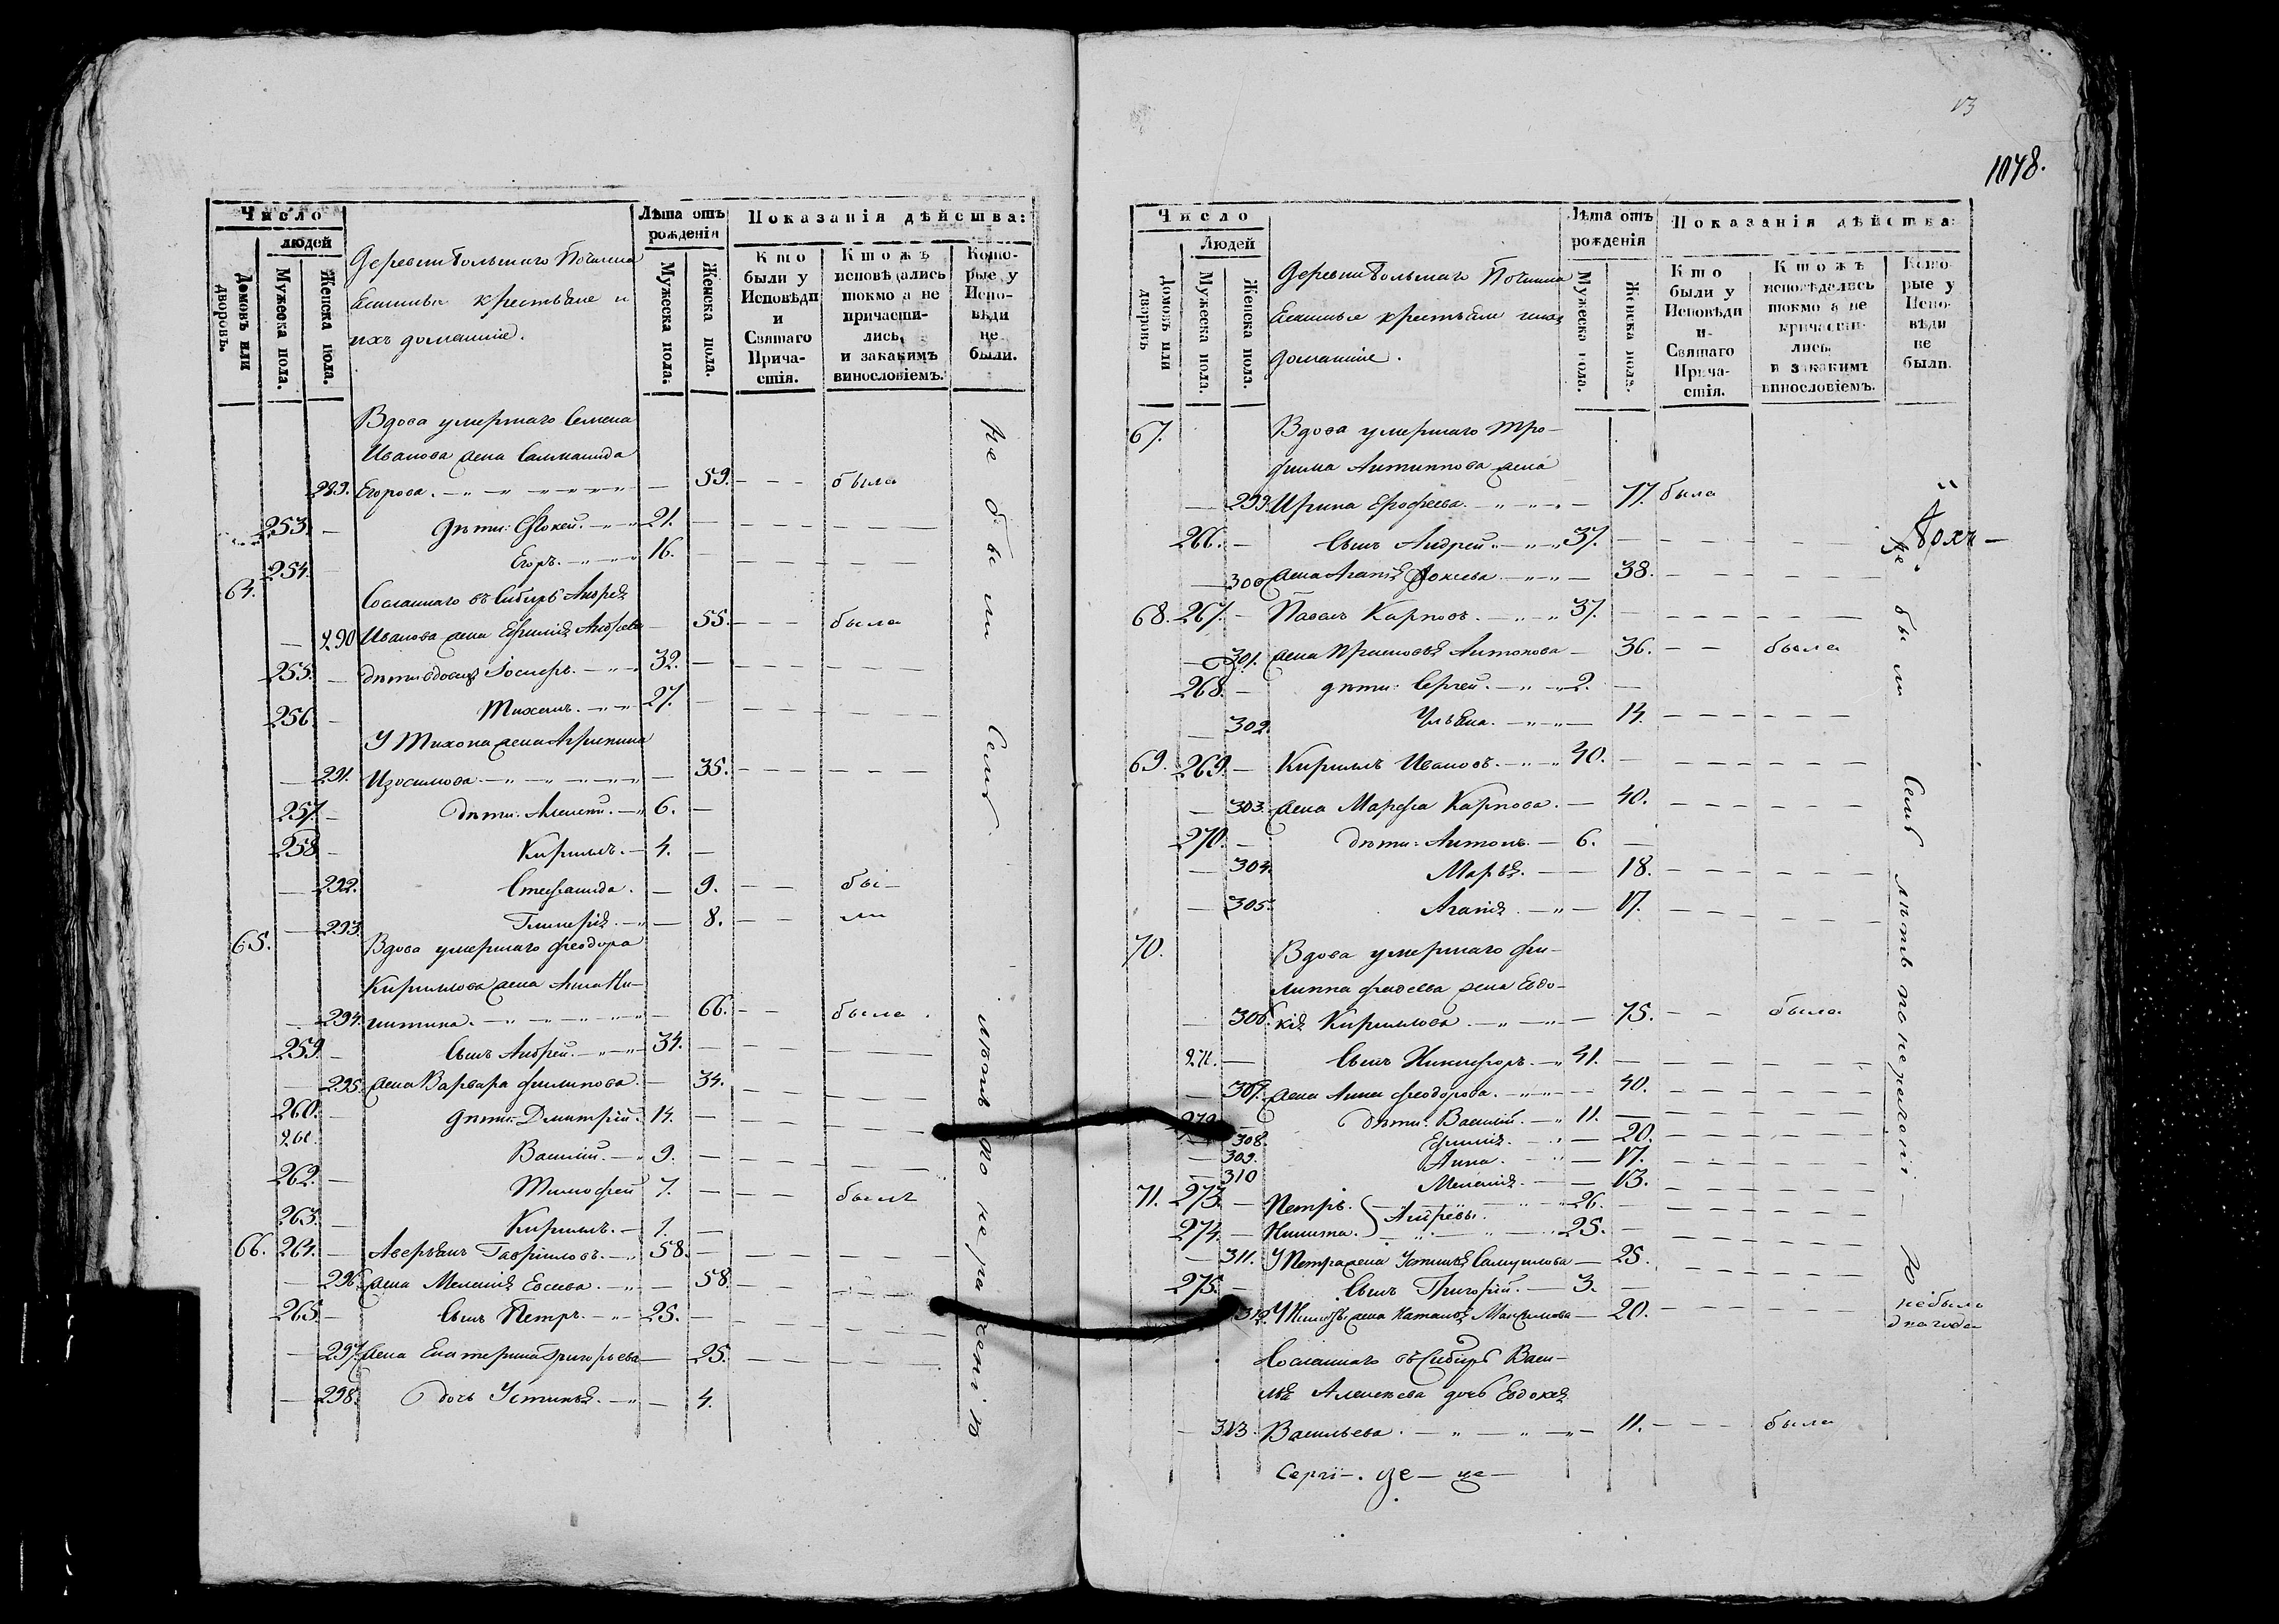 Число
людей
Домовъ или дворовъ.
Мужеска пола.
Женска пола.
Деревни Большаго Починка
крестьяне и
ихъ домашніе.
Лѣта отъ рожденія
Мужеска пола.
Женска пола.
Показанія дѣйства:
Кто были у Исповѣди и Святаго Причастія.
Ктожъ исповѣдались токмо а не причастились, и закакимъ винословіемъ.
Которые у Исповѣди не были.
Вдова умершаго Семена
Иванова жена
289. Егорова. — 59. — — была
253. — дѣти: Фокей. — 21. —
254. — Егоръ. — 16. —
64. Сосланнаго въ Сибирь Андрея
— 290 Иванова жена Ефимія Андреева — 55. — — была
255. — дѣти вдовецъ — 32. —
256. — Тихонъ. — 27. —
У Тихона жена Агрипина
— 291. Изосимова — 35. — —
257. — дѣти: Алексѣй. — 6. —
258. — Кирилъ. — 4. —
— 292. Стефанида. — 9. — — бы-
— 293. Гликерія. — 8. — — ли
65. Вдова умершаго Феодора
Кириллова жена Анна Ни-
— 294. китина. — 66. — — была.
259. — сынъ Андрей. — 34. —
— 295. жена Варвара Филипова. — 34. —
260. — дѣти: Дмитрій. 14. —
261. Василій. — 9. —
262. — Тимофей 7. — — —
263. — Кирилъ. — 1. —
66. 264. — Аверьянъ Гавриловъ. — 58. —
— 296. жена Меланія Евсеева. — 58. —
265. — сынъ Петръ. — 25. —
— 297. жена Екатерина Григорьева — 25.
— 298. дочь Устинья. — 4.
не были Семь лѣтъ по нерачению
1078.
Число
Людей
Домовъ или дворовъ
Мужеска пола.
Женска пола.
Деревни Большаго Починка
крестьяне
домашніе.
Лѣта отъ рожденія
Мужеска пола.
Женска пола.
Показанія дѣйства:
Кто были у Исповѣди и Святаго Причастія.
Ктожъ исповѣдались токмо а не причастились, и закакимъ винословіемъ.
Которые у Исповѣди не были.
67. Вдова умершаго Тро-
фима Антипова жена
— 299. Ирина Ерофеева. — 77. была
266. — сынъ Андрей — 37. —
— 300 жена Агапія Фокеева. — 38. —
68. 267. — Павелъ Карповъ. — 37. —
— 301. жена Антонова — 36. — — была
268. — дѣти: Сергей. — 2. —
— 302. Ульяна. — 14. —
69. 269. — Кирилъ Ивановъ. — 40. —
— 303. жена Марфа Карпова. — 40. —
270. — дѣти: Антонъ. — 6. —
— 304. Марья. — 18. —
— 305. Агапія. — 17. —
70. Вдова умершаго Фи-
липпа Фадеева жена Евдо-
— 306. кія Кириллова. — 75. — — была
271. — сынъ Никифоръ. — 41. —
— 307. жена Анна Феодорова. — 40. —
272. дѣти: Василій. — 11. —
— 308. Ефимія. — 20. —
— 309. Анна. — 17. —
— 310 Меланія. — 13. —
71. 273. — Петръ. } Андреевы. 26. —
274. — Никита. } 25. —
— 311. У Петра жена Устинья Самуилова — 25. —
275. — сынъ Григорій. — 3. —
312. У Никиты жена Наталья Максимова — 20. —
Сосланнаго въ Сибирь Васи-
лья Алексѣева дочь Евдокея
— 313. Васильева. — 11. — — была
не были Семь лѣтъ по нерачению
не была
два года